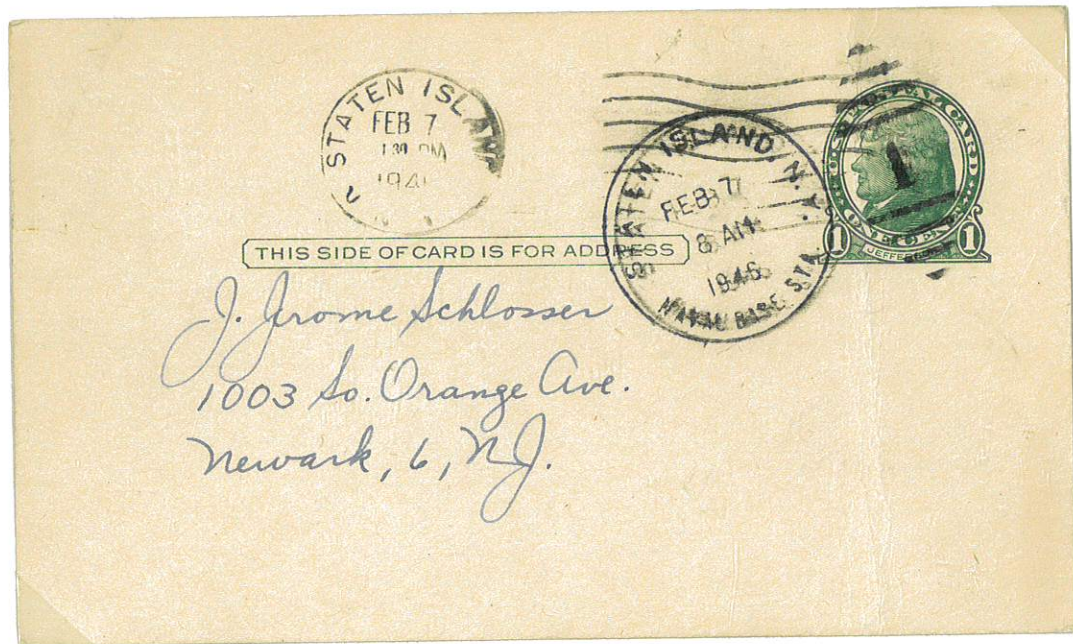 STATEN ISLAND
FEB 7
PM
194
2
STATEN ISLAND, N.Y.
FEB 7
8 AM
1946
NAVAL BASE STA.
POSTAL CARD
1
ONE CENT
1 JEFFERSON 1
THIS SIDE OF CARD IS FOR ADDRESS
J. Jerome Schlosser
1003 So. Orange Ave.
Newark, 6, N.J.